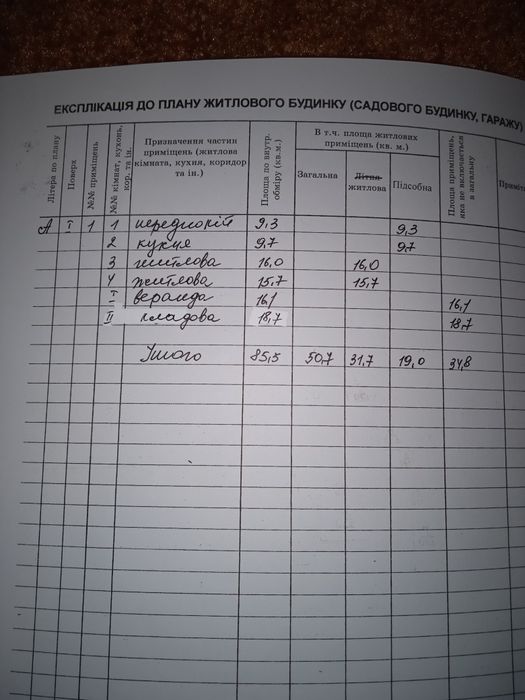 ЕКСПЛІКАЦІЯ ДО ПЛАНУ ЖИТЛОВОГО БУДИНКУ (САДОВОГО БУДИНКУ, ГАРАЖУ)
Літера по плану
Поверх
№№ приміщень
№№ кімнат, кухонь, кор. та ін.
Призначення частин
приміщень (житлова
кімната, кухня, коридор
та ін.)
Площа по внутр.
обміру (кв.м.)
В т.ч. площа житлових
приміщень (кв. м.)
Загальна
Літня
житлова
Підсобна
Площа приміщень,
яка не включається
в загальну
А I 1 1 передпокій 9,3 9,3
2 кухня 9,7 9,7
3 житлова 16,0 16,0
4 житлова 15,7 15,7
I веранда 16,1 16,1
II кладова 18,7 18,7
Усього 85,5 50,7 31,7 19,0 34,8